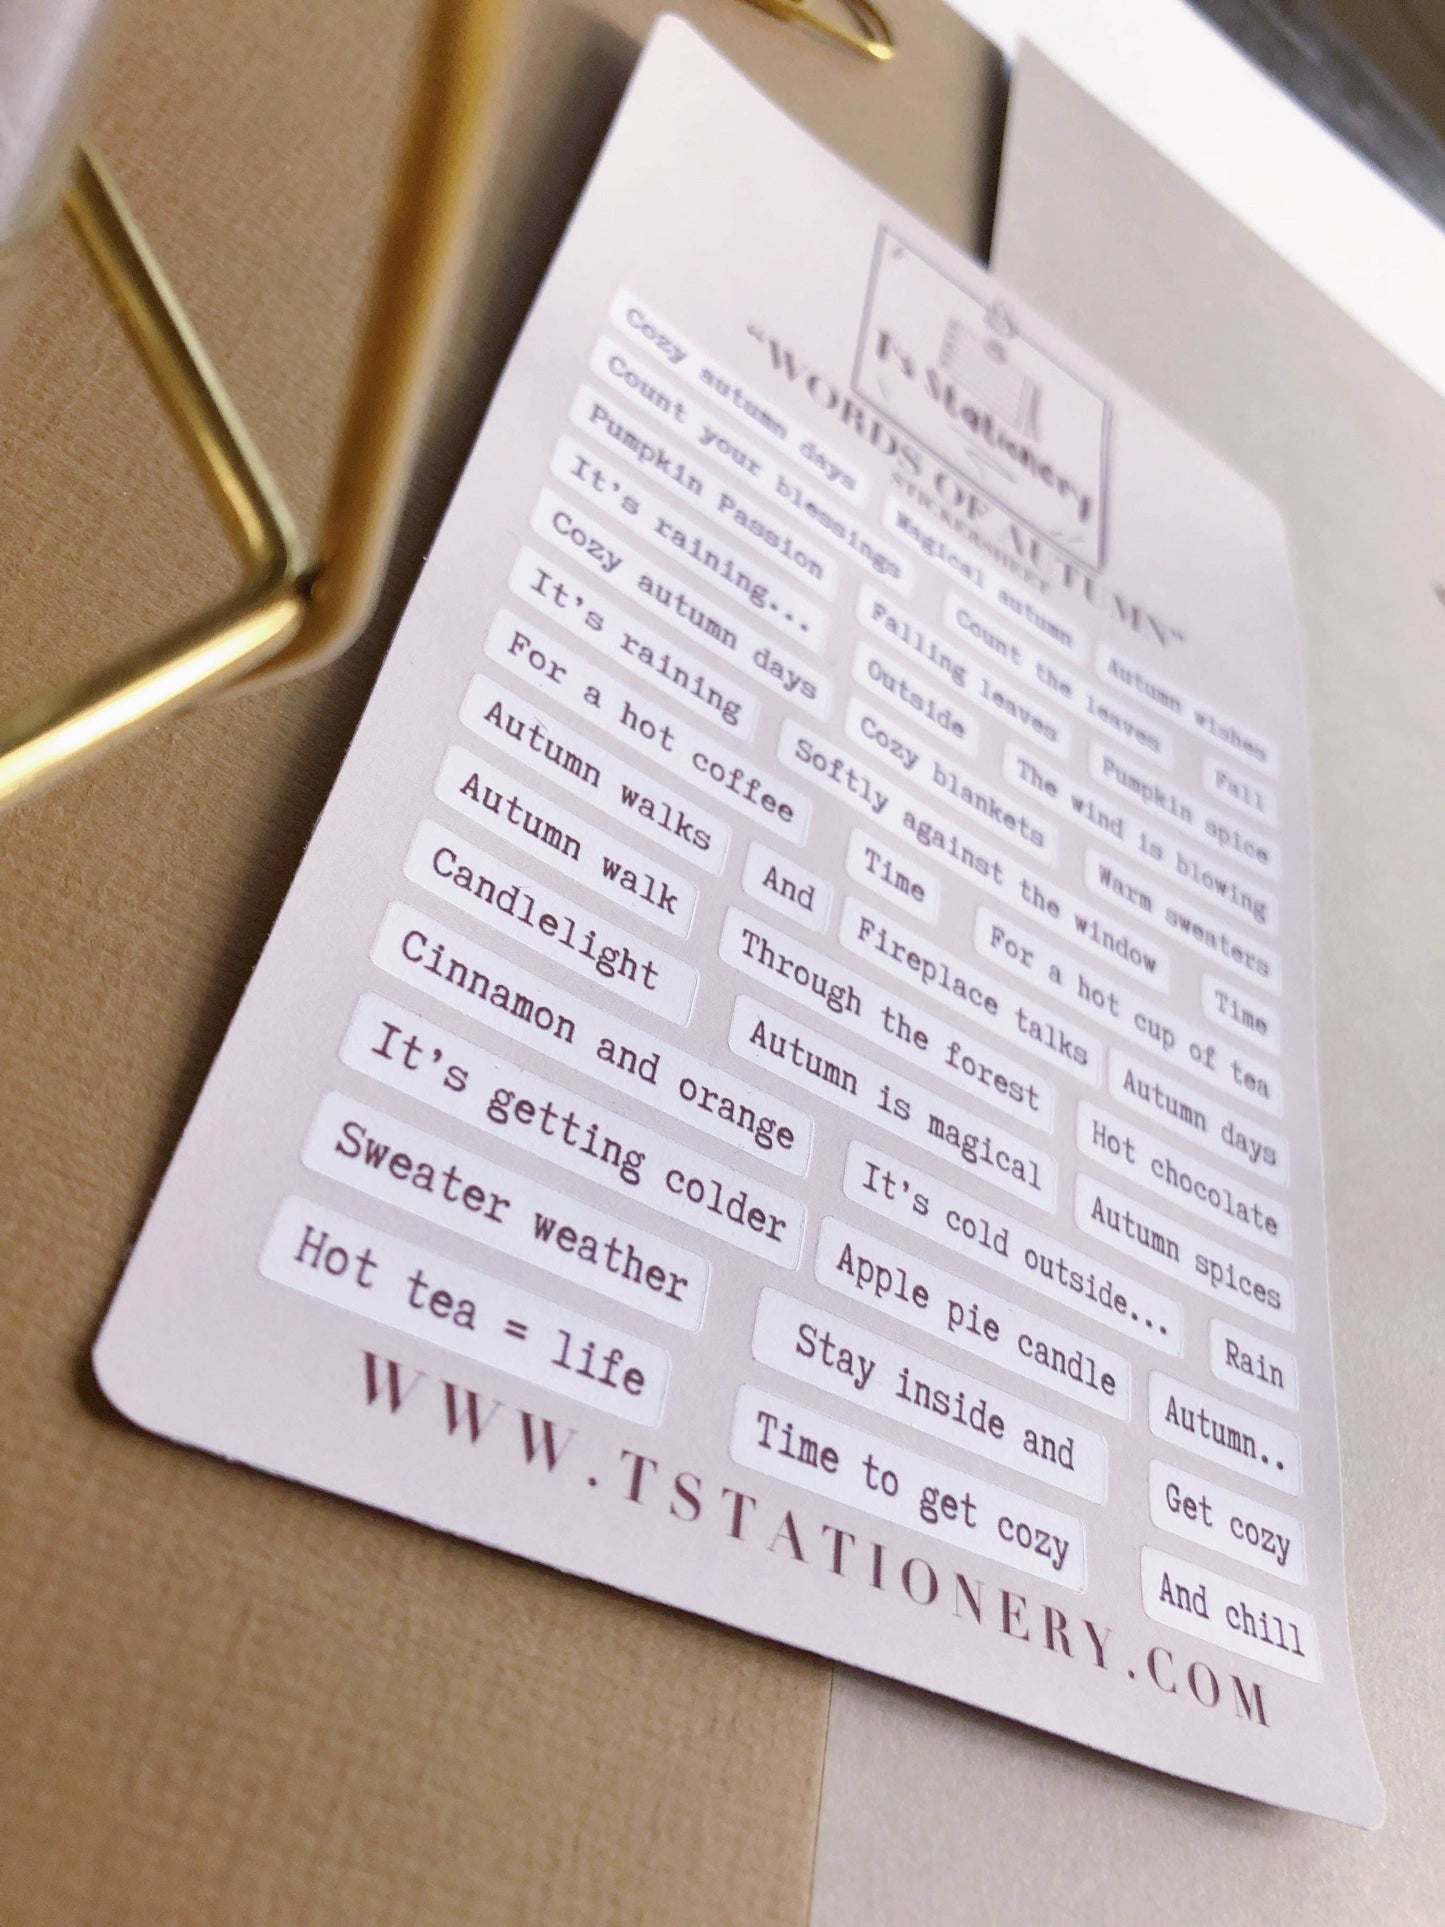 T's Stationery
“WORDS OF AUTUMN”
STICKERSHEET
Cozy autumn days Magical autumn Autumn wishes
Count your blessings Count the leaves Fall
Pumpkin Passion Falling leaves Pumpkin spice
It's raining... Outside The wind is blowing
Cozy autumn days Cozy blankets Warm sweaters
It's raining Softly against the window Time
For a hot coffee Time For a hot cup of tea
Autumn walks And Fireplace talks Autumn days
Autumn walk Through the forest Hot chocolate
Candlelight Autumn is magical Autumn spices
Cinnamon and orange It's cold outside... Rain
It's getting colder Apple pie candle Autumn..
Sweater weather Stay inside and Get cozy
Hot tea = life Time to get cozy And chill
WWW.TSTATIONERY.COM